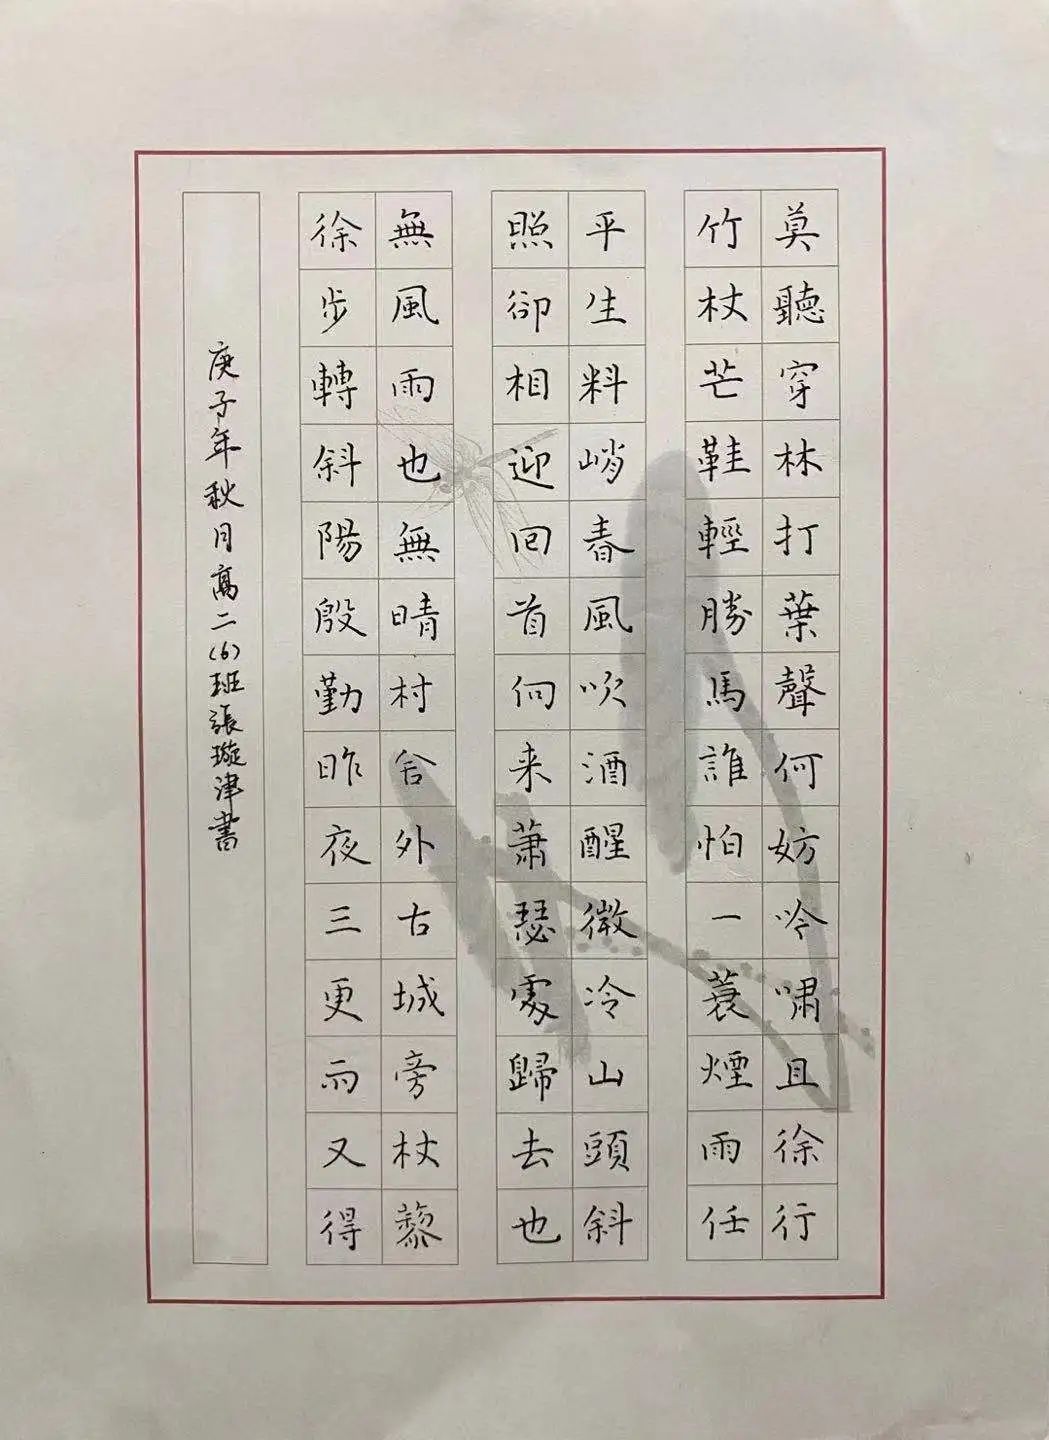 莫聽穿林打葉聲何妨吟嘯且徐行
竹杖芒鞋輕勝馬誰怕一蓑煙雨任
平生料峭春風吹酒醒微冷山頭斜
照卻相迎回首向来蕭瑟處歸去也
無風雨也無晴村舍外古城旁杖藜
徐步轉斜陽殷勤昨夜三更雨又得
庚子年秋月高二(6)班張璇津書